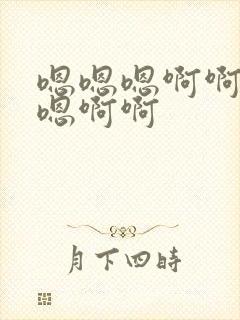 嗯嗯嗯啊啊
嗯啊啊
月下四时